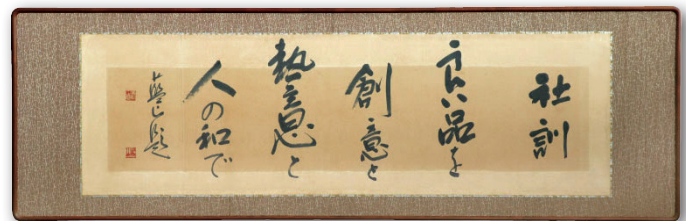 社訓
良い品を
創意と
熱意と
人の和で